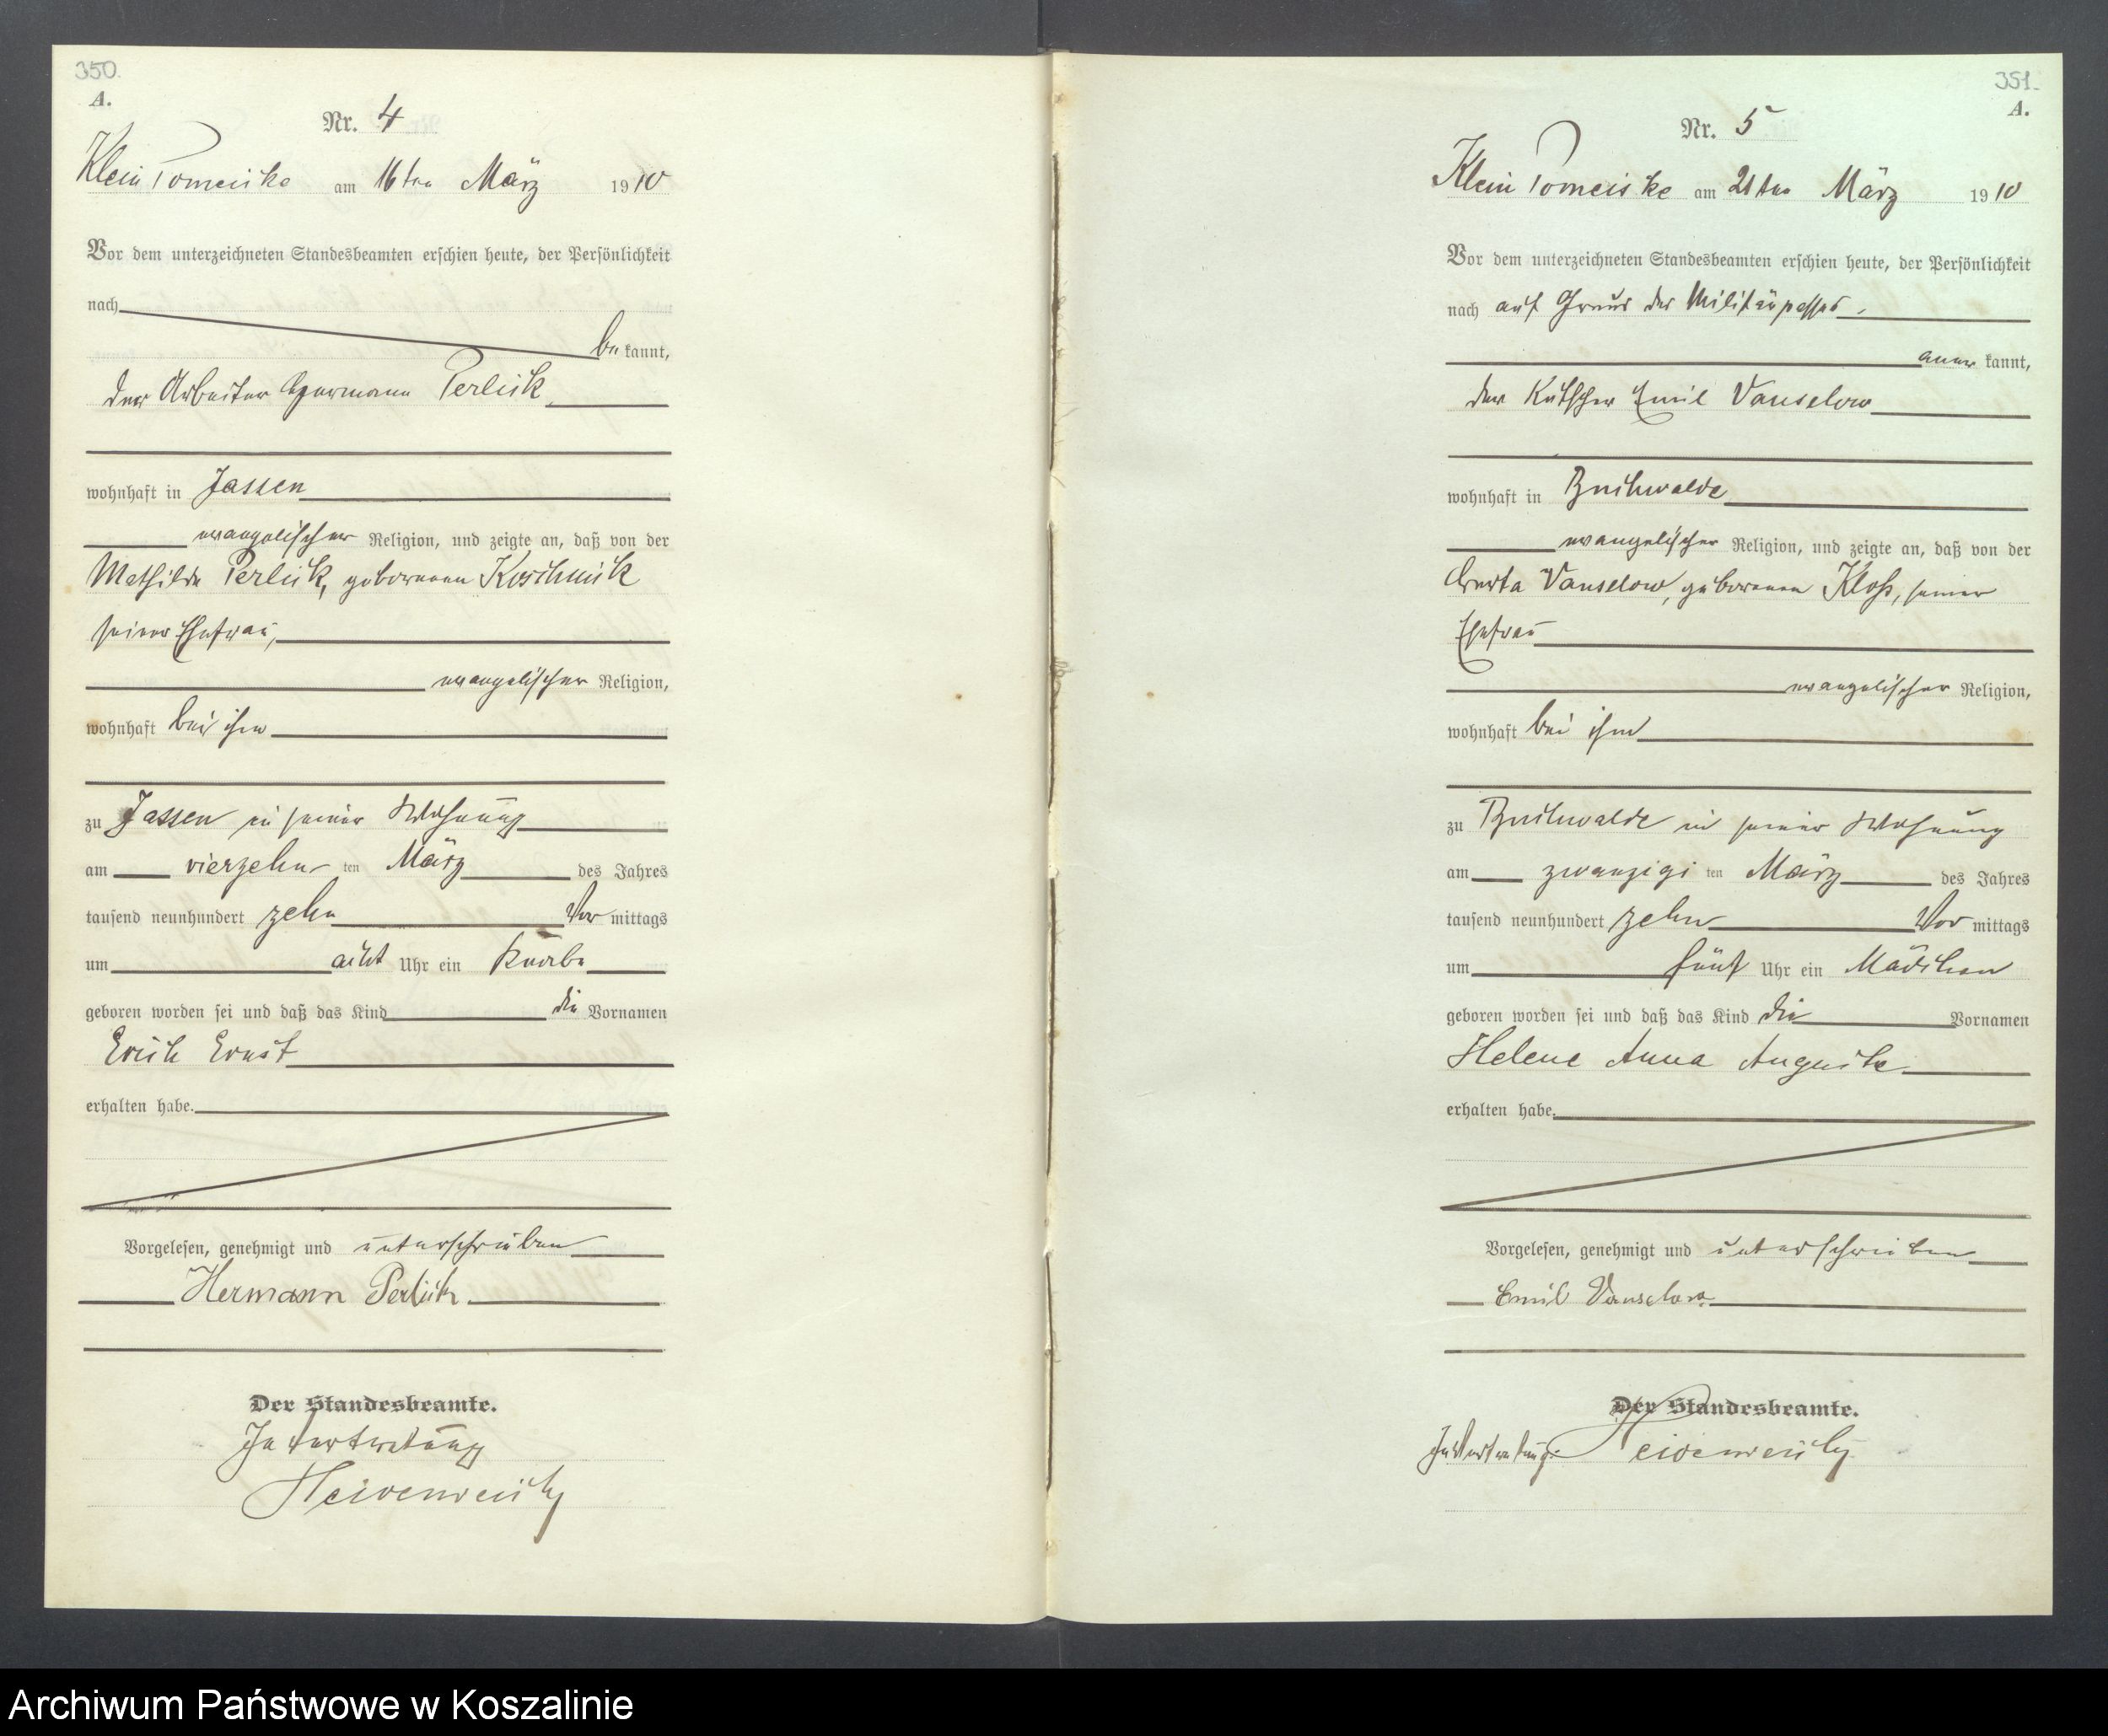 350.
A.
Nr. 4
Klein Pomeiske am 16ten März 1910
Vor dem unterzeichneten Standesbeamten erschien heute, der Persönlichkeit
nach
be kannt,
der Arbeiter Hermann Perlick
wohnhaft in Jassen
evangelischer Religion, und zeigte an, daß von der
Mathilde Perlick, geborenen Koschnick
seiner Ehefrau,
evangelischer Religion,
wohnhaft bei ihm
zu Jassen in seiner Wohnung
am vierzehn ten März des Jahres
tausend neunhundert zehn Vor mittags
um acht Uhr ein Knabe
geboren worden sei und daß das Kind die Vornamen
Erich Ernst
erhalten habe.
Vorgelesen, genehmigt und unterschrieben
Hermann Perlick
Der Standesbeamte.
In Vertretung
351.
A.
Nr. 5
Klein Pomeiske am 21ten März 1910
Vor dem unterzeichneten Standesbeamten erschien heute, der Persönlichkeit
nach auf Grund des Militärpasses
aner kannt,
der Kutscher Emil Vanselow
wohnhaft in Buchwalde
evangelischer Religion, und zeigte an, daß von der
Vanselow, geborenen Kloß, seiner
Ehefrau
evangelischer Religion,
wohnhaft bei ihm
zu Buchwalde in seiner Wohnung
am zwanzigs ten März des Jahres
tausend neunhundert zehn Vor mittags
um fünf Uhr ein Mädchen
geboren worden sei und daß das Kind die Vornamen
Helene Anna Auguste
erhalten habe.
Vorgelesen, genehmigt und unterschrieben
Emil Vanselow
Der Standesbeamte.
In Vertretung:
Archiwum Państwowe w Koszalinie